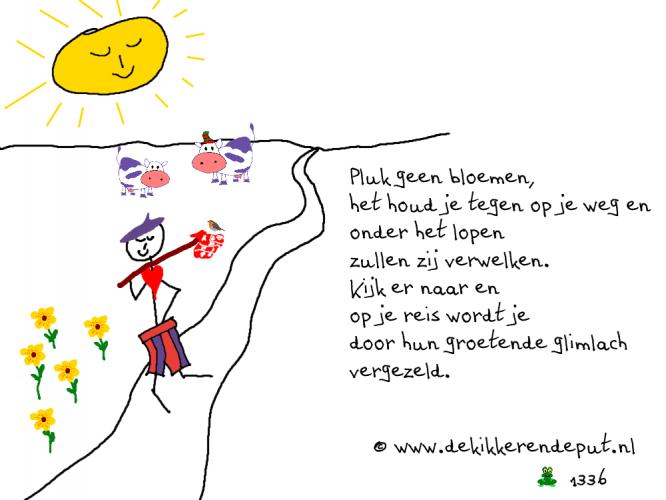 Pluk geen bloemen,
het houd je tegen op je weg en
onder het lopen
zullen zij verwelken.
Kijk er naar en
op je reis wordt je
door hun groetende glimlach
vergezeld.
© www.dekikkerendeput.nl
1336